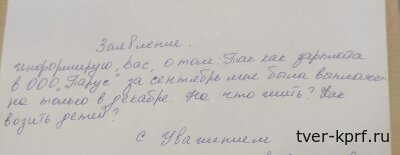 Заявление.
информирую, вас, о том: Так как зарплата
в ООО „Парус" за сентябрь мне была выплаче-
на только в декабре. На что жить? Как
возить детей?
С Уважением
tver-kprf.ru